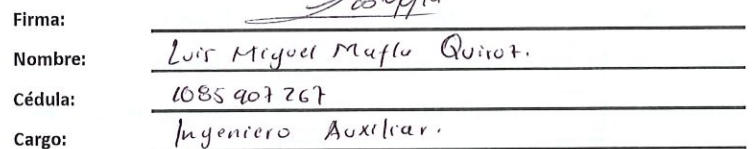 Firma:
Nombre: Luis Miguel Maflu Quiroz.
Cédula: 1085907267
Cargo: Ingeniero Auxiliar.